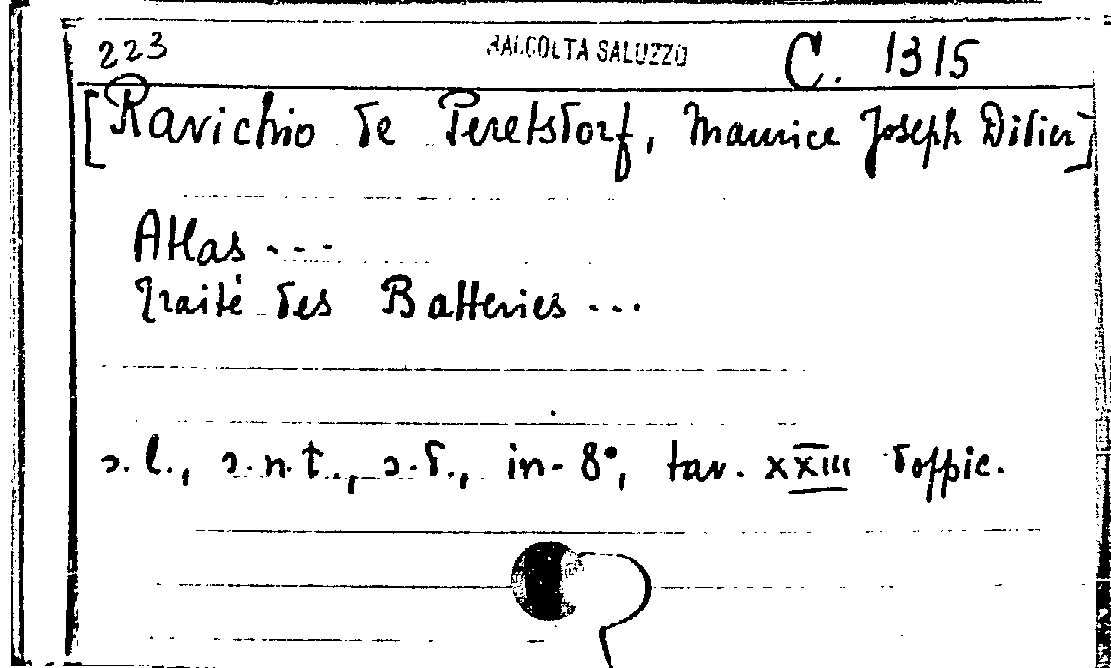 223 RACCOLTA SALUZZO C. 1315
[Ravichio de Peretsdorf, Maurice Joseph Didier]
Atlas ---
Traité des Batteries ...
s.l., s.n.t., s.d., in-8°, tav. XXIII doppie.